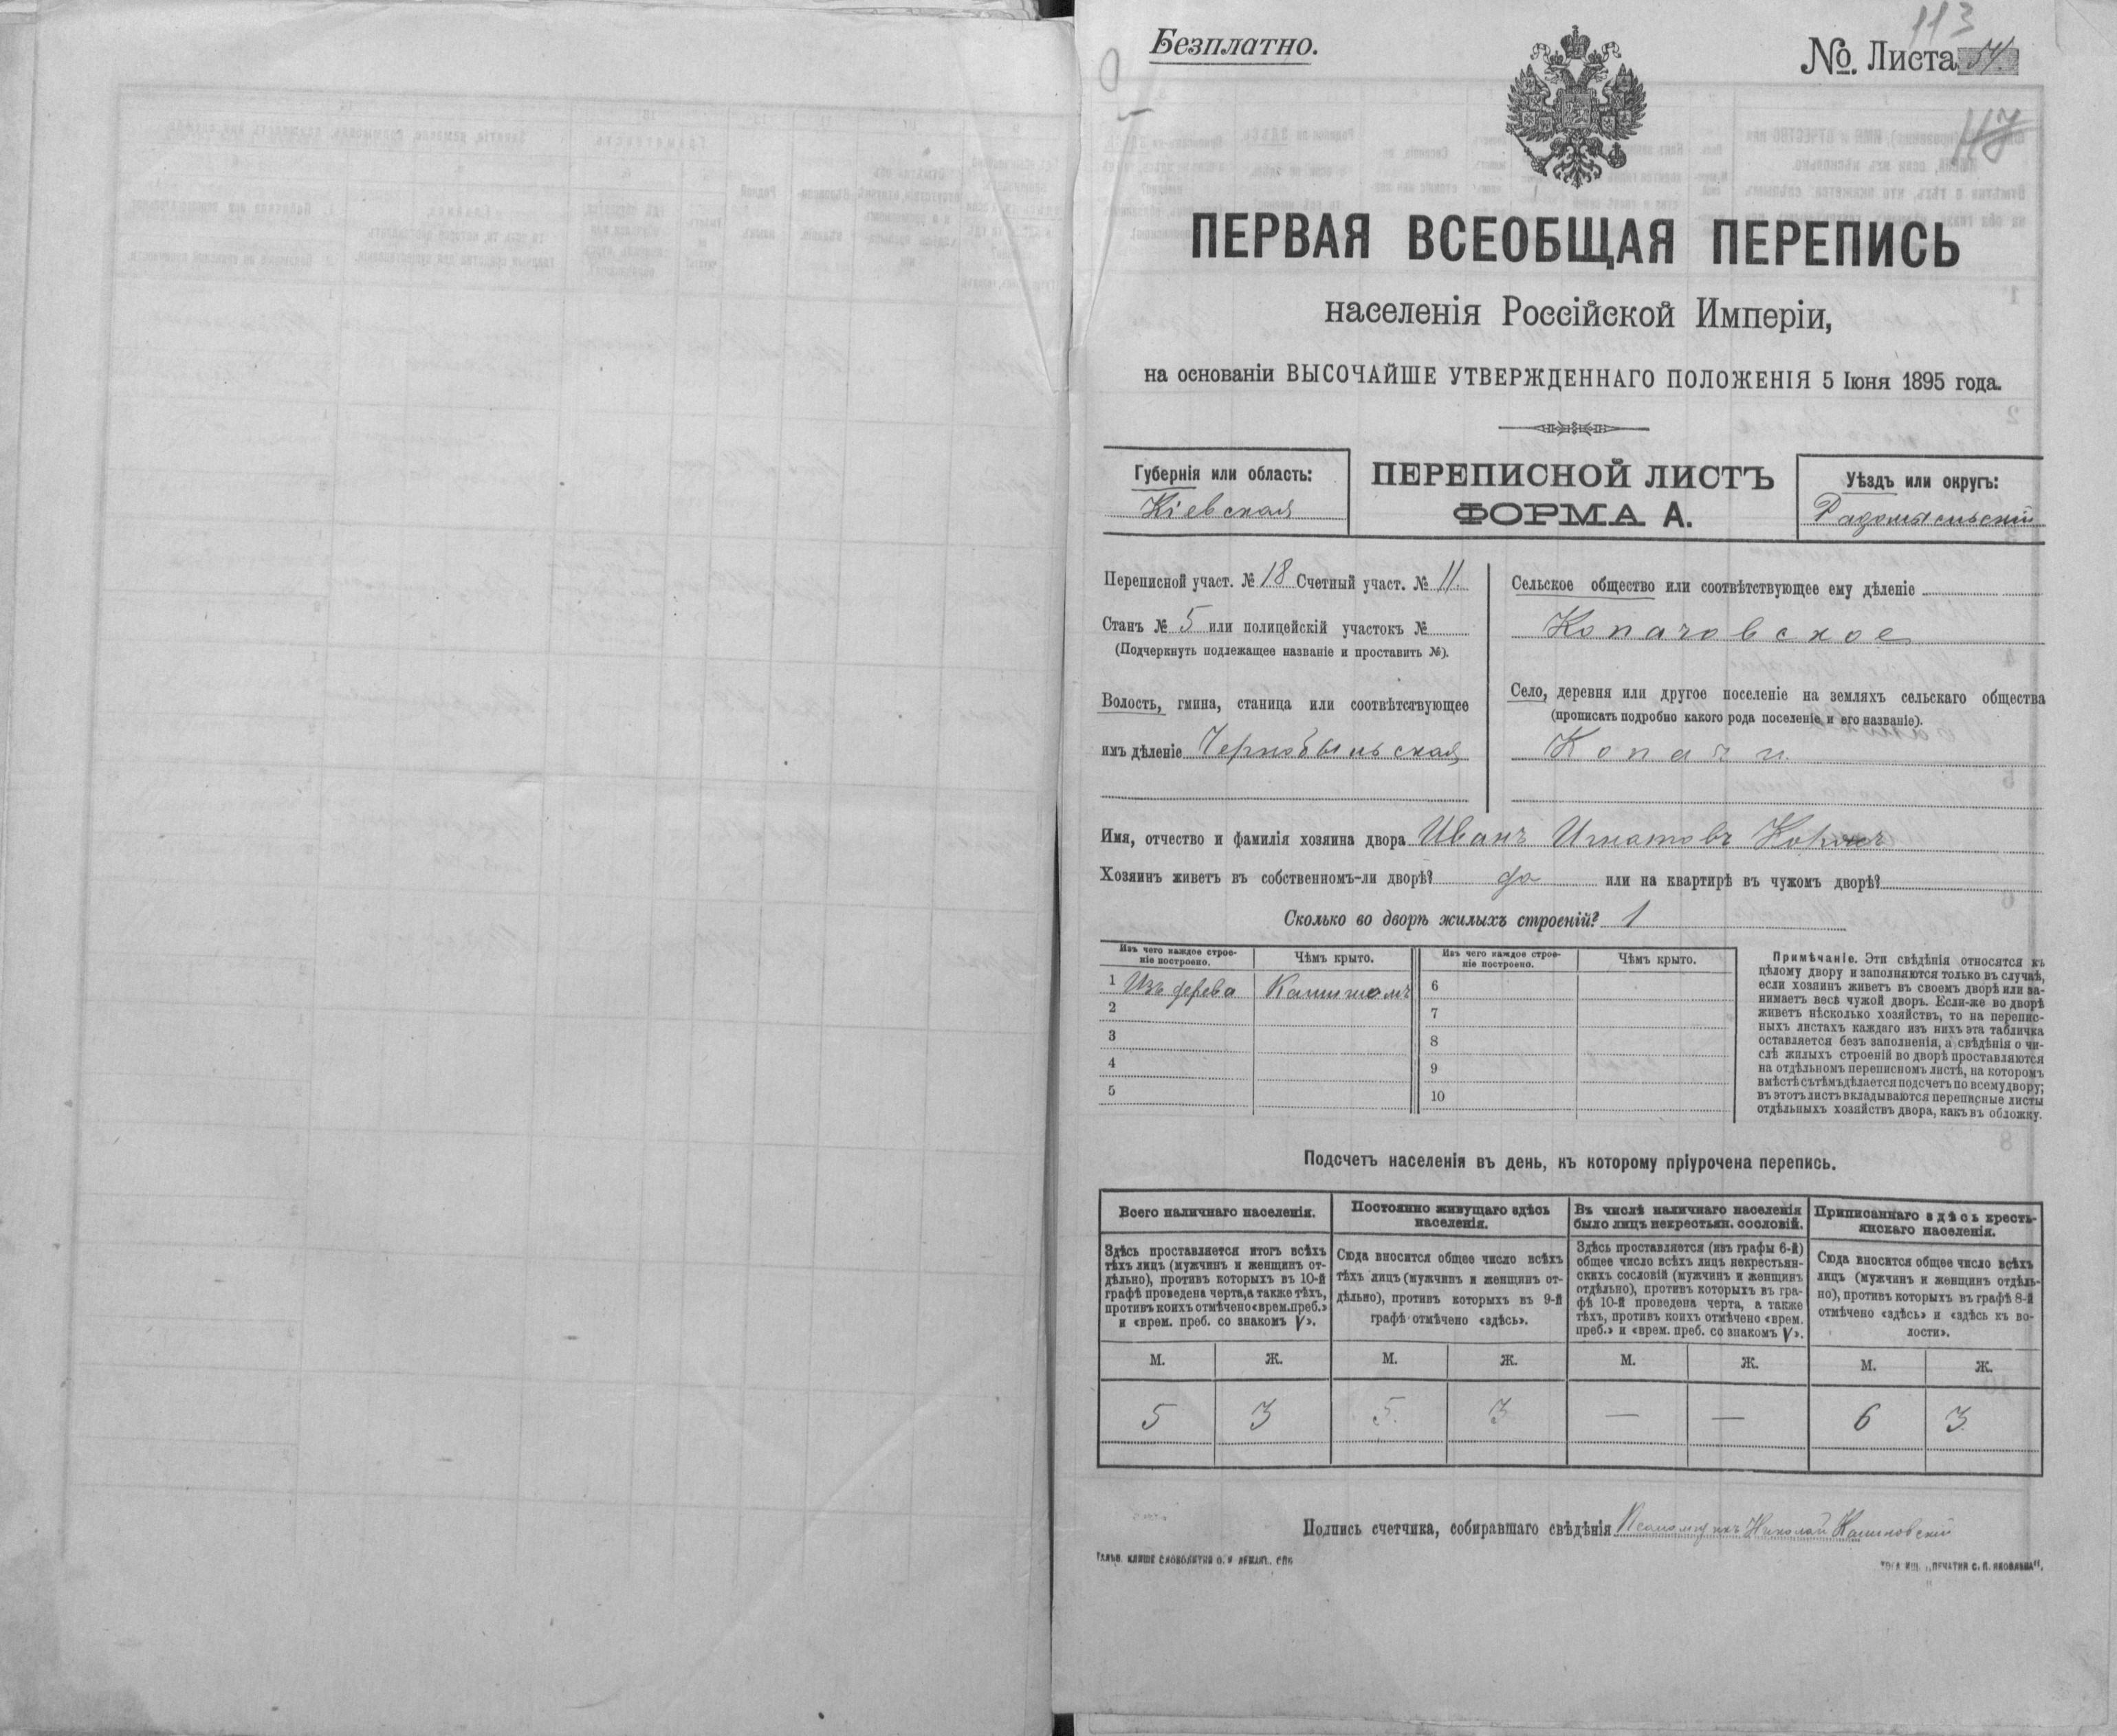 113
Безплатно.
№. Листа 54.
117
ПЕРВАЯ ВСЕОБЩАЯ ПЕРЕПИСЬ
населенія Россійской Имперіи,
на основаніи ВЫСОЧАЙШЕ УТВЕРЖДЕННАГО ПОЛОЖЕНІЯ 5 Іюня 1895 года.
Губернія или область:
Кіевская
ПЕРЕПИСНОЙ ЛИСТЪ
ФОРМА А.
Уѣздъ или округъ:
Радомысльскій
Переписной участ. № 18 Счетный участ. № 11.
Станъ № 5 или полицейскій участокъ №
(Подчеркнуть подлежащее названіе и проставить №).
Волость, гмина, станица или соотвѣтствующее
имъ дѣленіе Чернобыльская
Сельское общество или соотвѣтствующее ему дѣленіе
Копачовское
Село, деревня или другое поселеніе на земляхъ сельскаго общества
(прописать подробно какого рода поселеніе и его названіе).
Копачи.
Имя, отчество и фамилія хозяина двора Иванъ Игнатовъ
Хозяинъ живетъ въ собственномъ-ли дворѣ? да или на квартирѣ въ чужомъ дворѣ?
Сколько во дворѣ жилыхъ строеній? 1
Изъ чего каждое строе-
ніе построено.
Чѣмъ крыто.
Изъ чего каждое строе-
ніе построено.
Чѣмъ крыто.
1 Изъ дерева Камышомъ 6
2 7
3 8
4 9
5 10
Примѣчаніе. Эти свѣдѣнія относятся къ
цѣлому двору и заполняются только въ случаѣ,
если хозяинъ живетъ въ своемъ дворѣ или за-
нимаетъ весь чужой дворъ. Если-же во дворѣ
живетъ нѣсколько хозяйствъ, то на перепис-
ныхъ листахъ каждаго изъ нихъ эта табличка
оставляется безъ заполненія, а свѣдѣнія о чи-
слѣ жилыхъ строеній во дворѣ проставляются
на отдѣльномъ переписномъ листѣ, на которомъ
вмѣстѣ съ тѣмъ дѣлается подсчетъ по всему двору;
въ этотъ листъ вкладываются переписные листы
отдѣльныхъ хозяйствъ двора, какъ въ обложку.
Подсчетъ населенія въ день, къ которому пріурочена перепись.
Всего наличнаго населенія.
Здѣсь проставляется итогъ всѣхъ
тѣхъ лицъ (мужчинъ и женщинъ от-
дѣльно), противъ которыхъ въ 10-й
графѣ проведена черта, а также тѣхъ,
противъ коихъ отмѣчено «врем. преб.»
и «врем. преб. со знакомъ V».
Постоянно живущаго здѣсь
населенія.
Сюда вносится общее число всѣхъ
тѣхъ лицъ (мужчинъ и женщинъ от-
дѣльно), противъ которыхъ въ 9-й
графѣ отмѣчено «здѣсь».
Въ числѣ наличнаго населенія
было лицъ некрестьян. сословій.
Здѣсь проставляется (изъ графы 6-й)
общее число всѣхъ лицъ некрестьян-
скихъ сословій (мужчинъ и женщинъ
отдѣльно), противъ которыхъ въ гра-
фѣ 10-й проведена черта, а также
тѣхъ, противъ коихъ отмѣчено «врем.
преб.» и «врем. преб. со знакомъ V».
Приписаннаго здѣсь кресть-
янскаго населенія.
Сюда вносится общее число всѣхъ
лицъ (мужчинъ и женщинъ отдѣль-
но), противъ которыхъ въ графѣ 8-й
отмѣчено «здѣсь» и «здѣсь къ во-
лости».
М. Ж. М. Ж. М. Ж. М. Ж.
5 3 5. 3 — — 6 3
Подпись счетчика, собиравшаго свѣдѣнія Псаломщикъ Николай Калиновскій